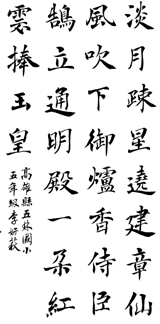 淡月疎星遶建章仙
風吹下御爐香侍臣
鵠立通明殿一朵紅
雲捧玉皇
高雄縣五林國小
五年級李妍萩